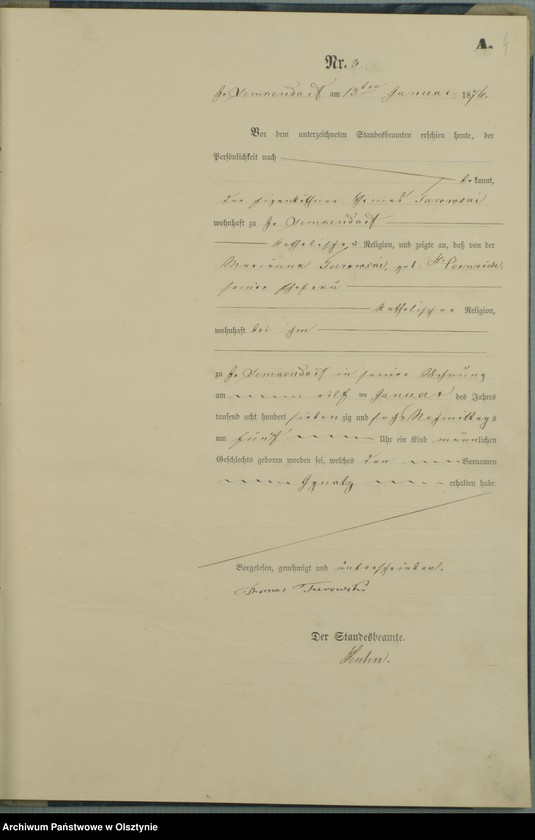 A. 4
Nr. 3
am 13ten Januar 1876.
Vor dem unterzeichneten Standesbeamten erschien heute, der
Persönlichkeit nach
bekannt,
der Eigenkäthner Thomas Turowski
wohnhaft zu Gr
katholischer Religion, und zeigte an, daß von der
Marianna Turowski, geb.
seiner Ehefrau
katholischer Religion,
wohnhaft bei ihm
zu Gr in seiner Wohnung
am eilf ten Januar des Jahres
tausend acht hundert sieben zig und sechs Nachmittags
um fünf Uhr ein Kind männlichen
Geschlechts geboren worden sei, welches den Vornamen
Ignatz erhalten habe.
Vorgelesen, genehmigt und unterschrieben.
Thomas Turowski
Der Standesbeamte.
Kuhn.
Archiwum Państwowe w Olsztynie